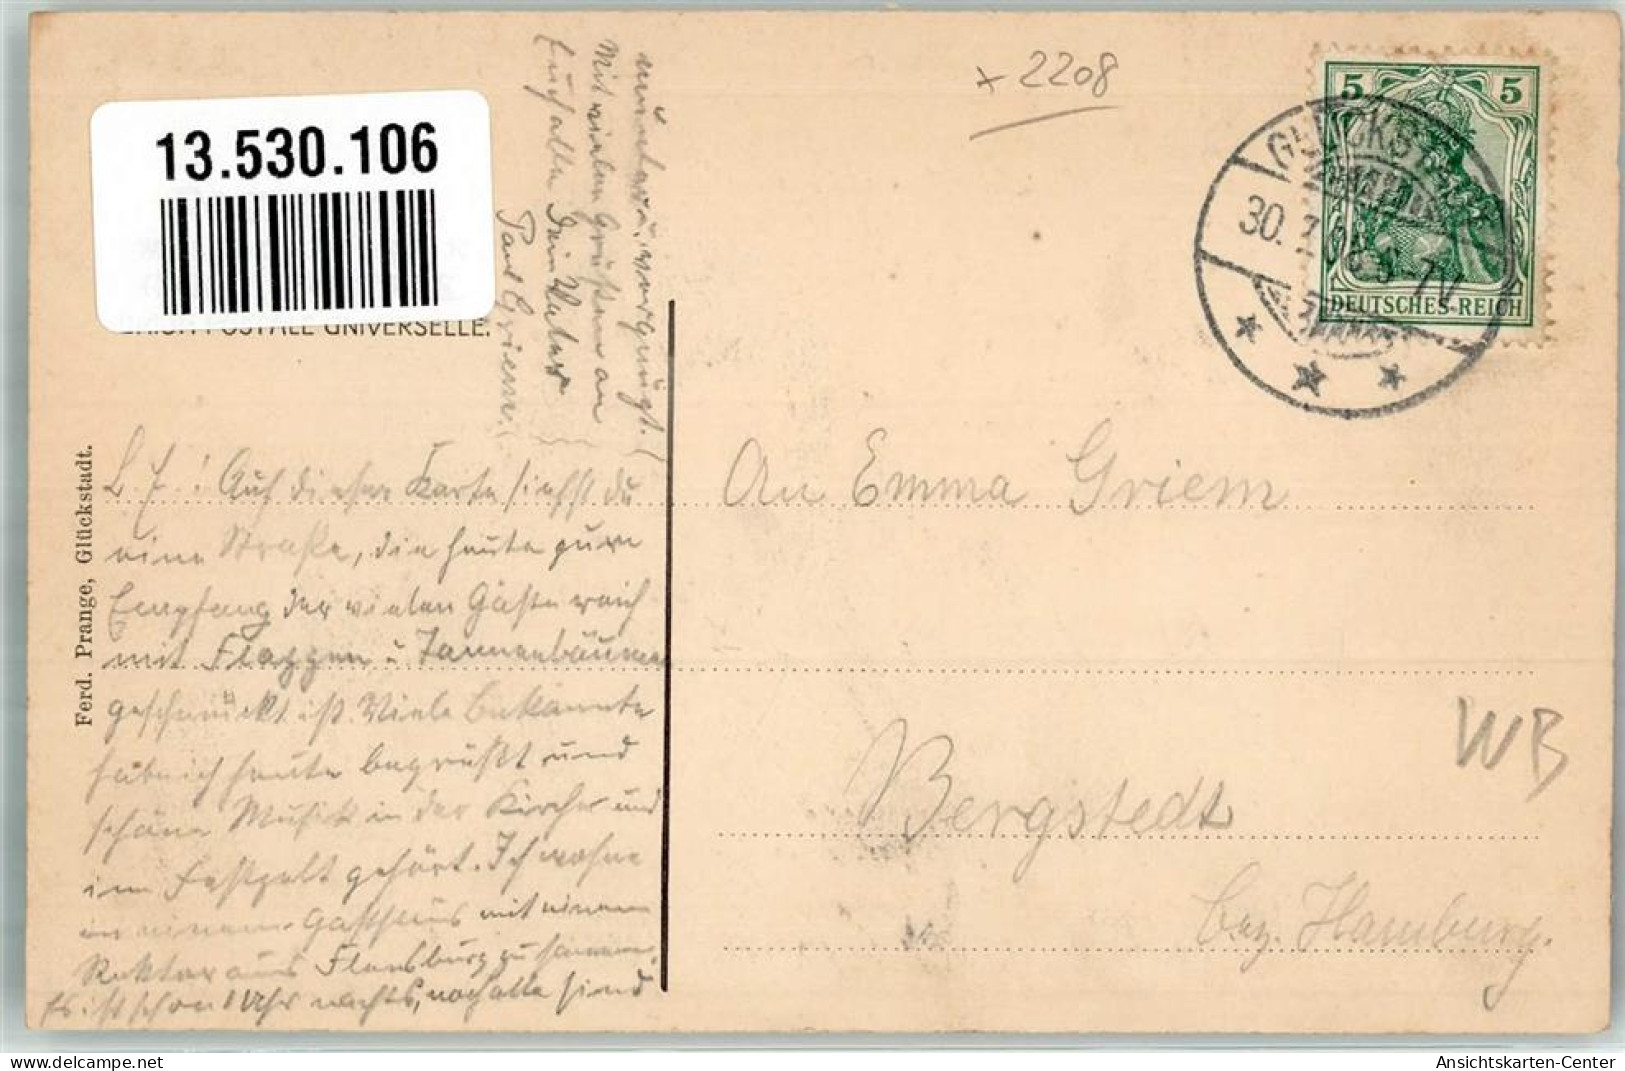 13.530.106
POSTALE UNIVERSELLE.
× 2208
5 5
DEUTSCHES REICH
GLÜCKSTADT
30. 7. 08. 6-7 N
Ferd. Prange, Glückstadt.
L. E.! Auf dieser Karte siehst du
eine Straße, die heute zum
Empfang der vielen Gäste reich
mit Flaggen u. Tannenbäumen
geschmückt ist. Viele bekannte
hab ich heute begrüßt und
schöne Musik in der Kirche und
im Festzelt gehört. Ich wohne
in einem Gasthaus mit einem
Rektor aus Flensburg zusammen.
Es ist schon 1 Uhr nachts, noch alle sind
munter u. vergnügt.
Mit vielen Grüßen an
Euch alle Dein Vater
Paul Griem.
An Emma Griem
Bergstedt
bez. Hamburg.
WB
delcampe.net
Ansichtskarten-Center